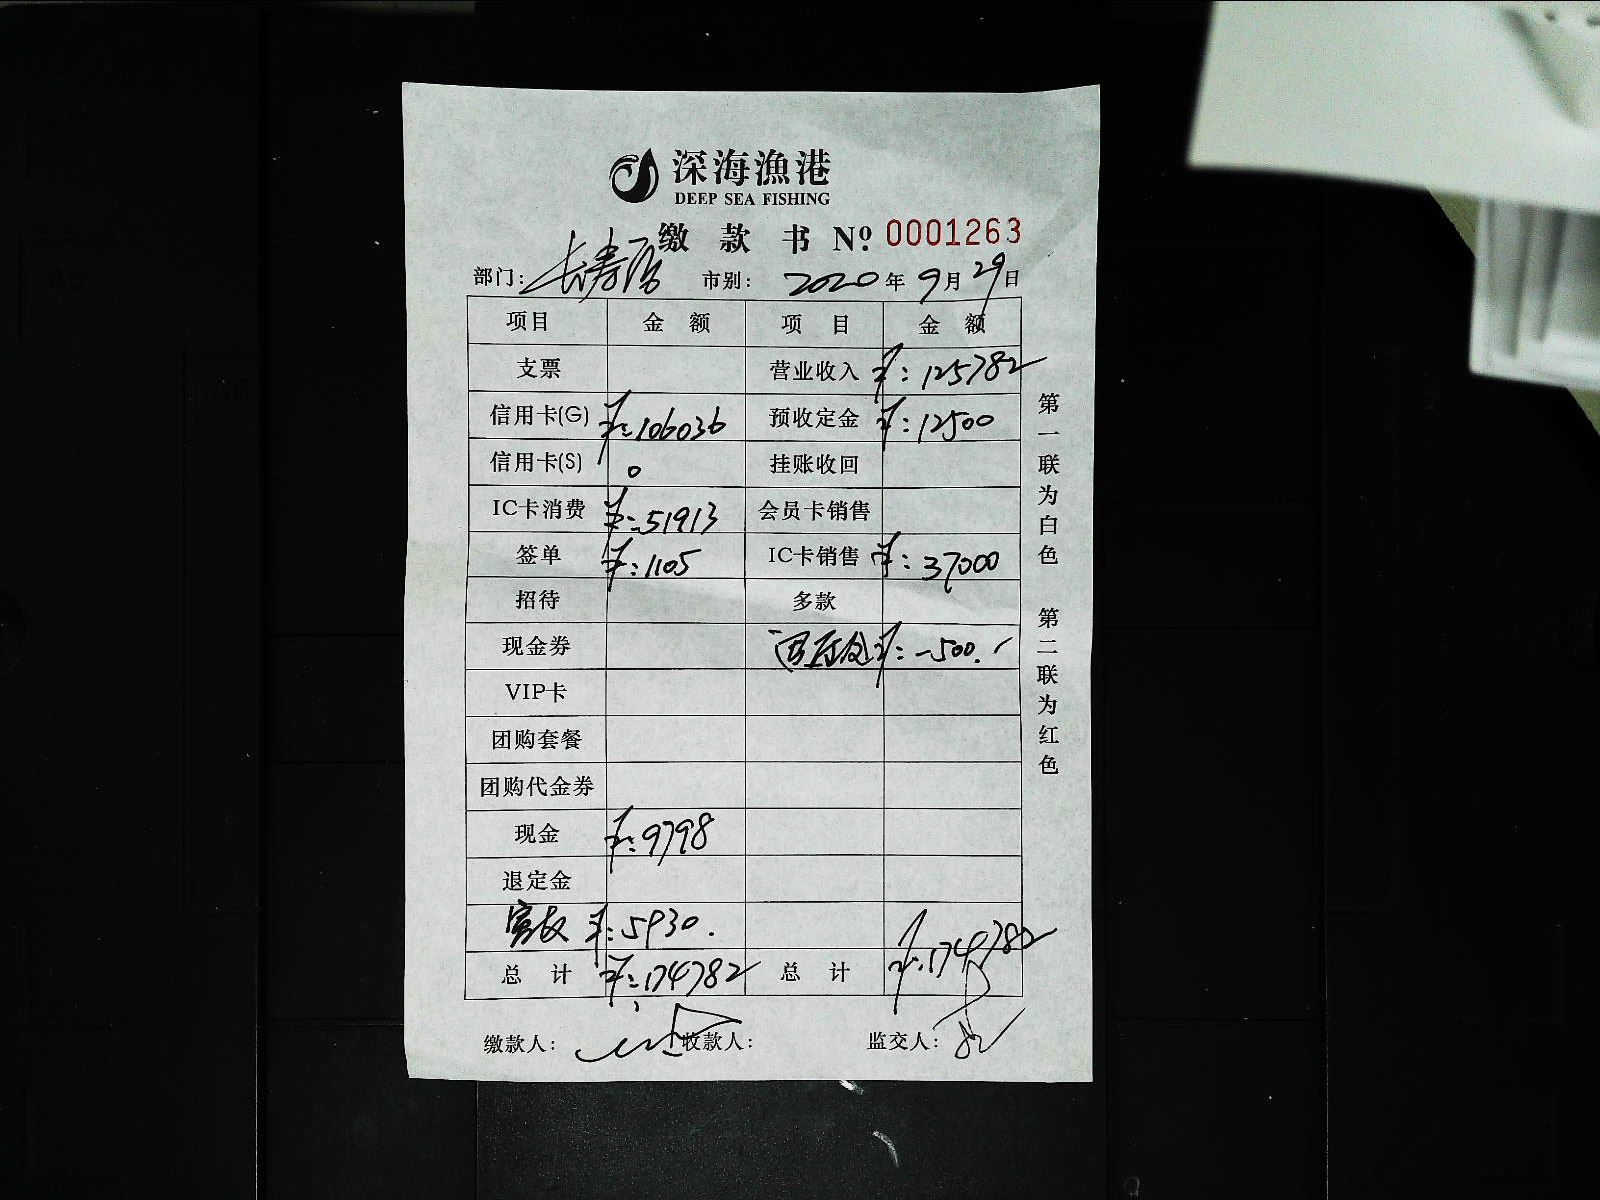 深海渔港
DEEP SEA FISHING
缴款书 Nº 0001263
部门: 长寿店 市别: 2020年9月29日
项目 金额 项目 金额
支票 营业收入 ¥:125782
信用卡(G) ¥:106036 预收定金 ¥:12500
信用卡(S) 0 挂账收回
IC卡消费 ¥:51913 会员卡销售
签单 ¥:1105 IC卡销售 ¥:37000
招待 多款
现金券 ¥:-500.
VIP卡
团购套餐
团购代金券
现金 ¥:9798
退定金
¥:5930.
总计 ¥:174782 总计 ¥:174782
缴款人: 收款人: 监交人:
第一联为白色 第二联为红色